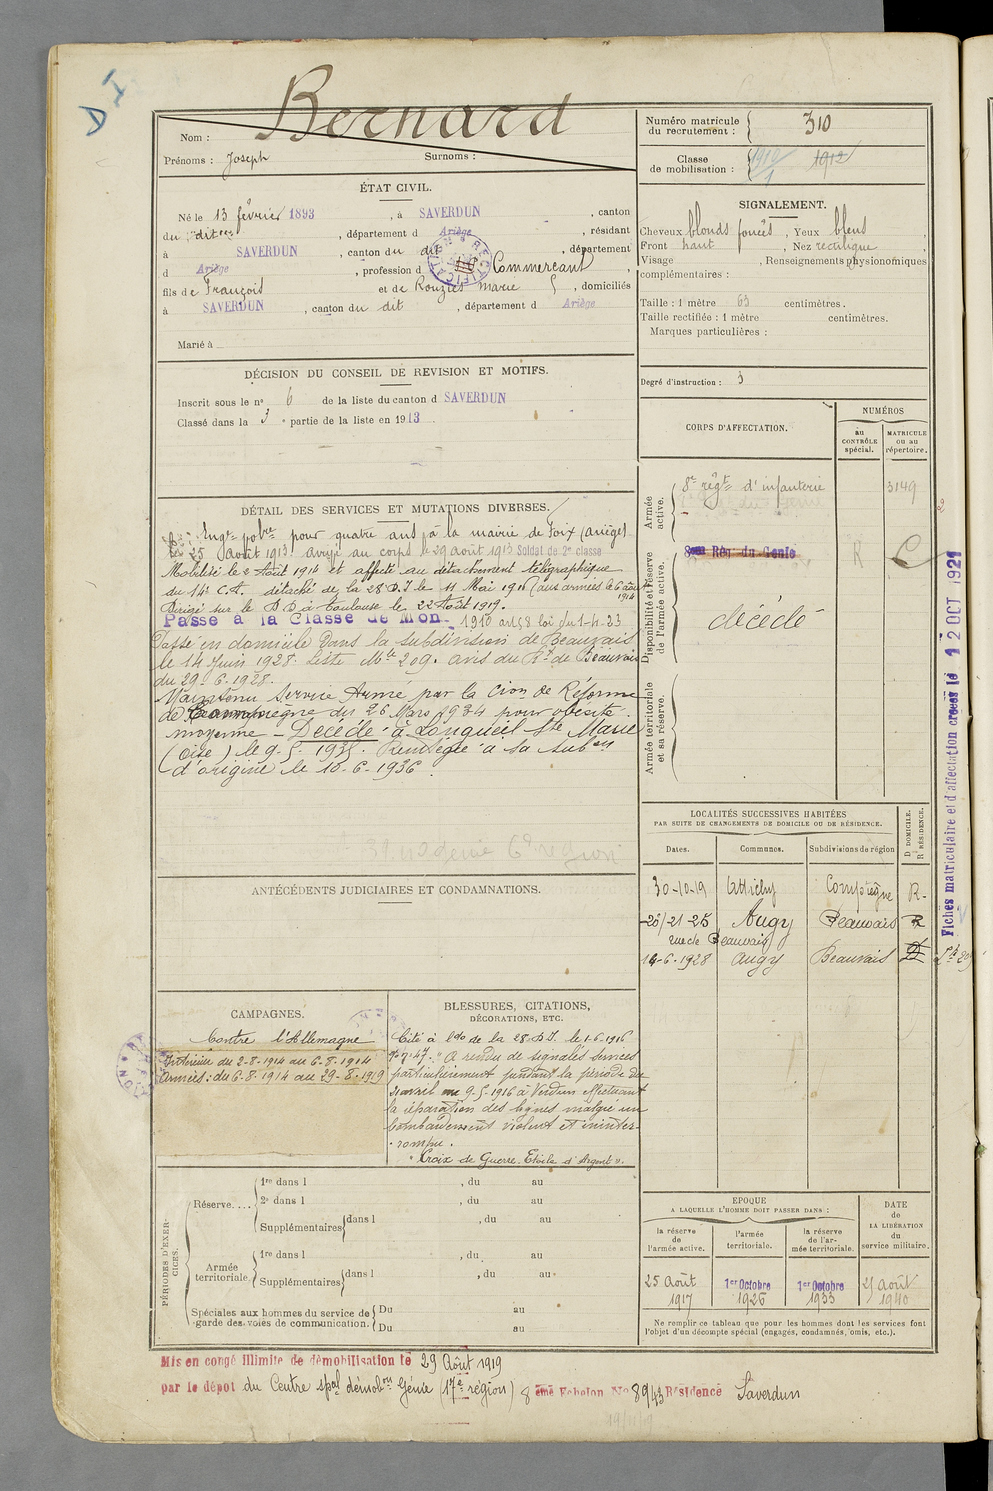 D I
Bernard
Nom :
Prénoms : Joseph Surnoms :
Numéro matricule du recrutement : 310
Classe de mobilisation : 1910/1 1912
ÉTAT CIVIL.
Né le 13 février 1893, à SAVERDUN, canton
du dit, département d Ariège, résidant
à SAVERDUN, canton du dit, département
d Ariège, profession d Commercant,
fils de François et de Rouziès marie, domiciliés
à SAVERDUN, canton du dit, département d Ariège
Marié à
SIGNALEMENT.
Cheveux blonds foncés, Yeux bleus,
Front haut, Nez rectiligne
Visage , Renseignements physionomiques
complémentaires :
Taille : 1 mètre 63 centimètres.
Taille rectifiée : 1 mètre centimètres.
Marques particulières :
Degré d'instruction : 3
DÉCISION DU CONSEIL DE REVISION ET MOTIFS.
Inscrit sous le n° 6 de la liste du canton d SAVERDUN
Classé dans la 3e partie de la liste en 1913
DÉTAIL DES SERVICES ET MUTATIONS DIVERSES.
Engé volre pour quatre ans à la mairie de Foix (Ariège)
le 25 août 1913 arrivé au corps le 29 août 1913 Soldat de 2e classe
Mobilisé le 2 Août 1914 et affecté au détachement télégraphique
du 14e C.A. détaché de la 28e D.I le 11 Mai 1916 (aux armées le 6 août
1914
Dirigé sur le D.D à Toulouse le 22 Août 1919.
Passé à la Classe de Mon 1910 art 58 loi du 1-4-23
Passé en domicile dans la subdivision de Beauvais
le 14 Juin 1928. Liste Mle 209. avis du Rt de Beauvais
du 29-6-1928.
Maintenu Service Armé par la Cion de Réforme
de Compiègne du 26 Mars 1934 pour obésité
moyenne - Décédé à Longueil Ste Marie
(Oise) le 9-5-1935. Renvoyée à sa subon
d'origine le 10-6-1936.
39 no génie 6e région
CORPS D'AFFECTATION.
NUMÉROS
au CONTRÔLE spécial.
MATRICULE ou au répertoire.
Armée active.
8e régt d'infanterie 3149
Disponibilité et réserve de l'armée active.
8eme Rég du Genie
décédé
Armée territoriale et sa réserve.
Fiches matriculaire et d'affectation créées le 12 OCT 1921
LOCALITÉS SUCCESSIVES HABITÉES
PAR SUITE DE CHANGEMENTS DE DOMICILE OU DE RÉSIDENCE.
Dates. Communes. Subdivisions de région
D DOMICILE. R RÉSIDENCE.
30-10-19 Attichy Compiègne R.
Augy Beauvais R
rue de Beauvais
14-6-1928 Augy Beauvais D
ANTÉCÉDENTS JUDICIAIRES ET CONDAMNATIONS.
CAMPAGNES.
Contre l'Allemagne
Intérieur du 2-8-1914 au 6-8-1914
Armées : du 6-8-1914 au 29-8-1919
BLESSURES, CITATIONS,
DÉCORATIONS, ETC.
Cité à l'do de la 28e D.I. le 1-6-1916
"A rendu de signalés services
particulièrement pendant la période du
21 avril au 9-5-1916 à Verdun effectuant
la réparation des lignes malgré un
bombardement violent et ininter-
rompu.
"Croix de Guerre. Etoile d'Argent".
PÉRIODES D'EXERCICES.
Réserve....
1re dans l , du au
2e dans l , du au
Supplémentaires dans l , du au
Armée territoriale.
1re dans l , du au
Supplémentaires dans l , du au
Spéciales aux hommes du service de garde des voies de communication.
Du au
Du au
EPOQUE
A LAQUELLE L'HOMME DOIT PASSER DANS :
la réserve de l'armée active.
l'armée territoriale.
la réserve de l'armée territoriale.
DATE de LA LIBÉRATION du service militaire.
25 Août 1917
1er Octobre 1926
1er Octobre 1933
25 Août 1940
Ne remplir ce tableau que pour les hommes dont les services font
l'objet d'un décompte spécial (engagés, condamnés, omis, etc.).
Mis en congé illimité de démobilisation le 29 Août 1919
par le dépôt du Centre spal démobon Génie (17e région) 8 ème Echelon No 8943 Résidence Saverdun
19/11/19